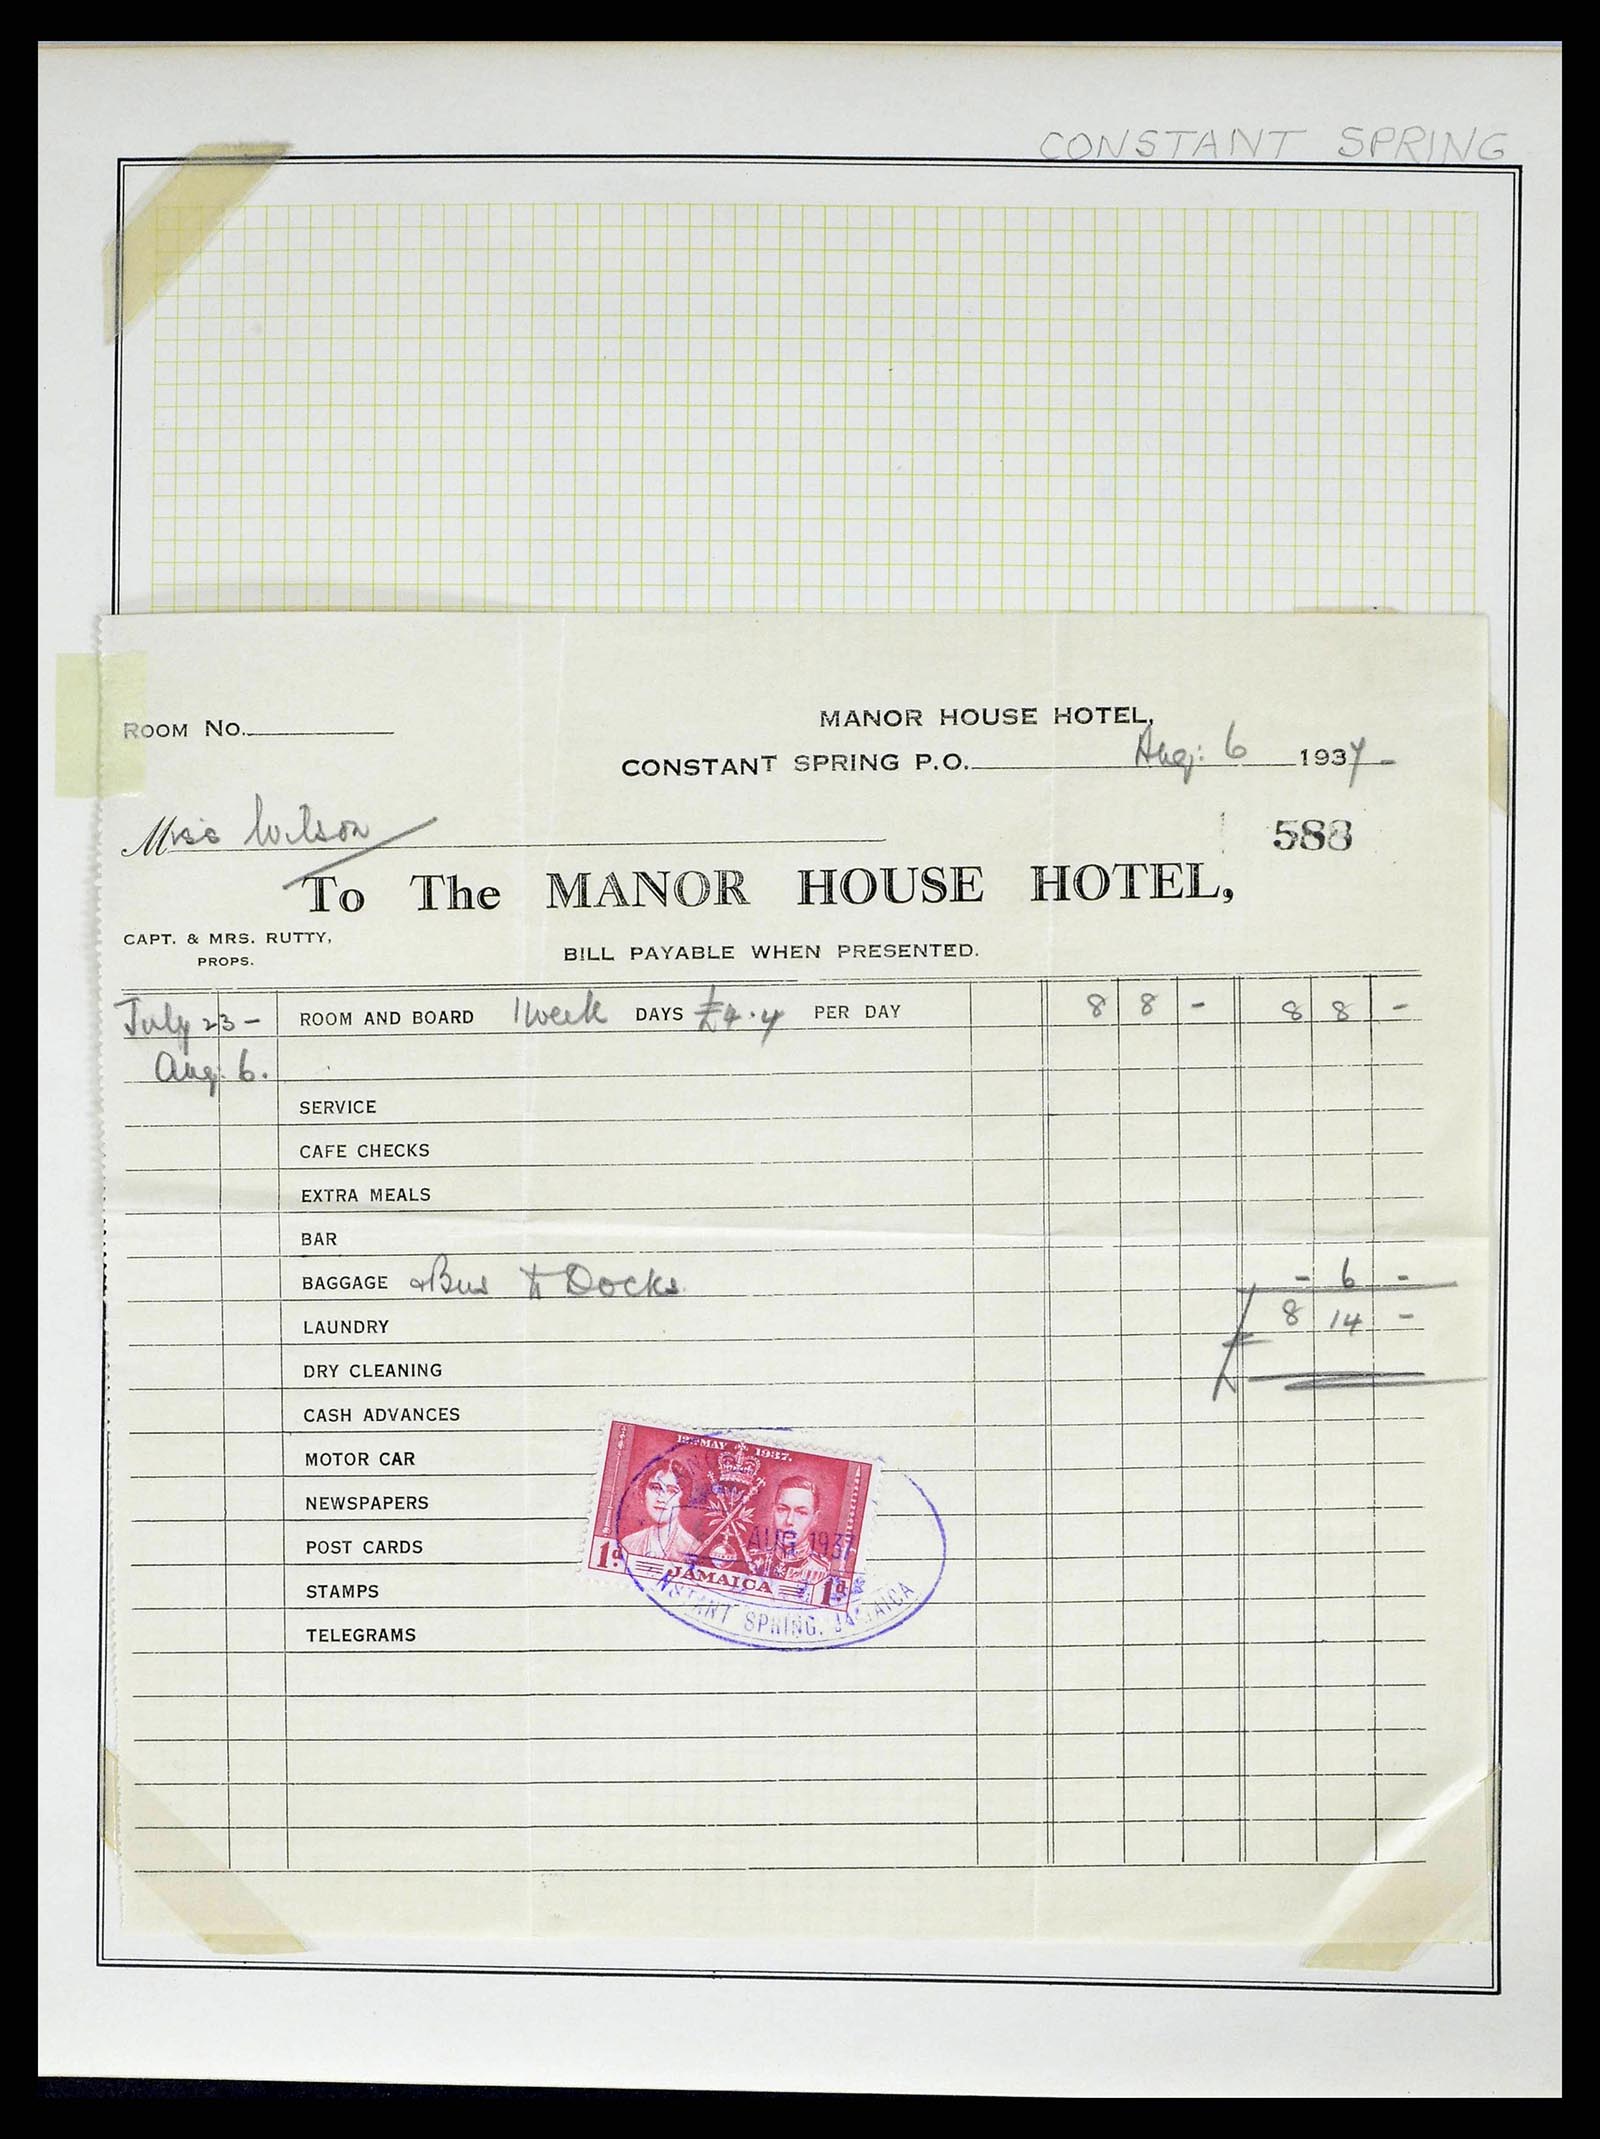 CONSTANT SPRING
ROOM NO.
MANOR HOUSE HOTEL,
CONSTANT SPRING P.O. Aug: 6 1937
Miss Wilson
588
To The MANOR HOUSE HOTEL,
CAPT. & MRS. RUTTY,
PROPS.
BILL PAYABLE WHEN PRESENTED.
July 23 - ROOM AND BOARD 1 week DAYS £4.4 PER DAY 8 8 - 8 8 -
Aug. 6.
SERVICE
CAFE CHECKS
EXTRA MEALS
BAR
BAGGAGE & Bus to Docks. - 6 -
LAUNDRY £ 8 14 -
DRY CLEANING
CASH ADVANCES
MOTOR CAR
NEWSPAPERS
POST CARDS
STAMPS
TELEGRAMS
12TH MAY 1937.
AUG 1937
1d. JAMAICA 1d.
NSTANT SPRING. JAMAICA